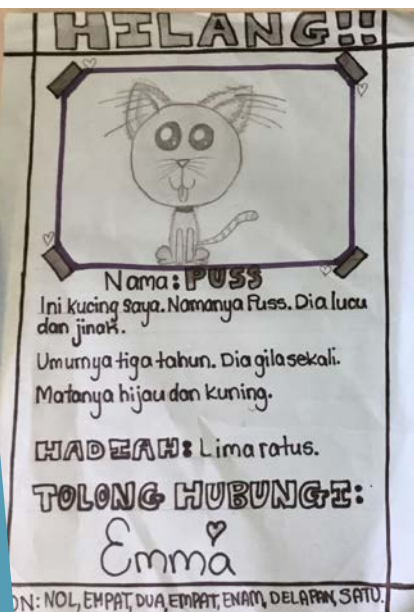 HILANG!!
Nama: PUSS
Ini kucing saya. Namanya Puss. Dia lucu
dan jinak.
Umurnya tiga tahun. Dia gila sekali.
Matanya hijau dan kuning.
HADIAH: Lima ratus.
TOLONG HUBUNGI:
Emma
ON: NOL, EMPAT, DUA, EMPAT, ENAM, DELAPAN, SATU.